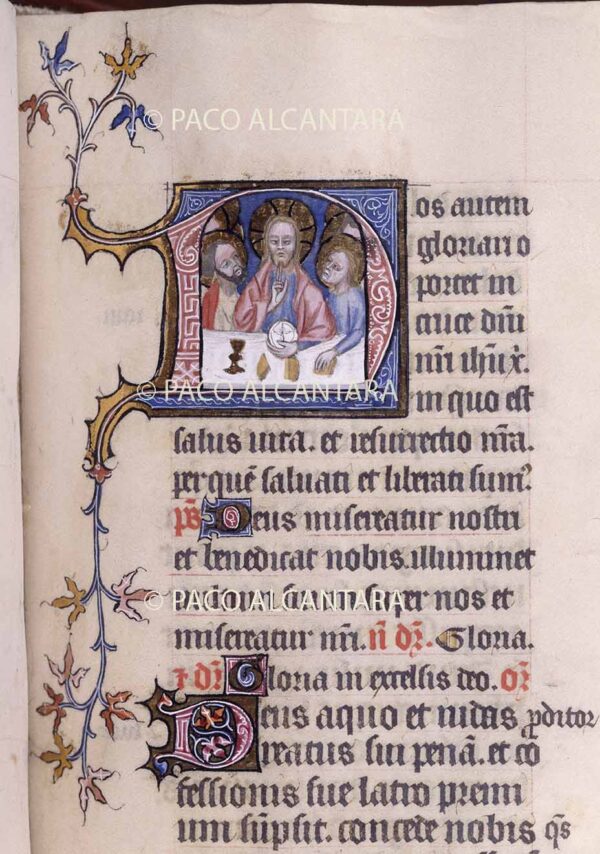 © PACO ALCANTARA
Nos autem
gloriari o
portet in
cruce dñi
nr̃i ihũ x̃.
in quo est
salus uita. et resurrectio nr̃a.
per quẽ saluati et liberati sumꝰ
© PACO ALCANTARA
p̃s Deus misereatur nostri
et benedicat nobis. illuminet
super nos et
© PACO ALCANTARA
misereatur nr̃i. Gloria.
Gloria in excelsis deo.
Deus a quo et iudas ꝓditor
reatus sui penã. et cõ
fessionis sue latro premi
um sũpsit. concede nobis q̃s